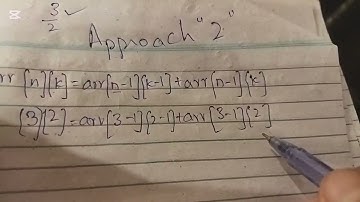 3/2 ✓
Approach "2"
arr[n][k] = arr[n-1][k-1] + arr[n-1][k]
[3][2] = arr[3-1][2-1] + arr[3-1][2]